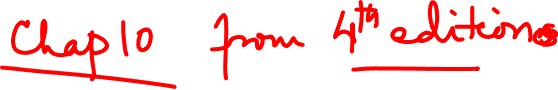 Chap 10 from 4th edition